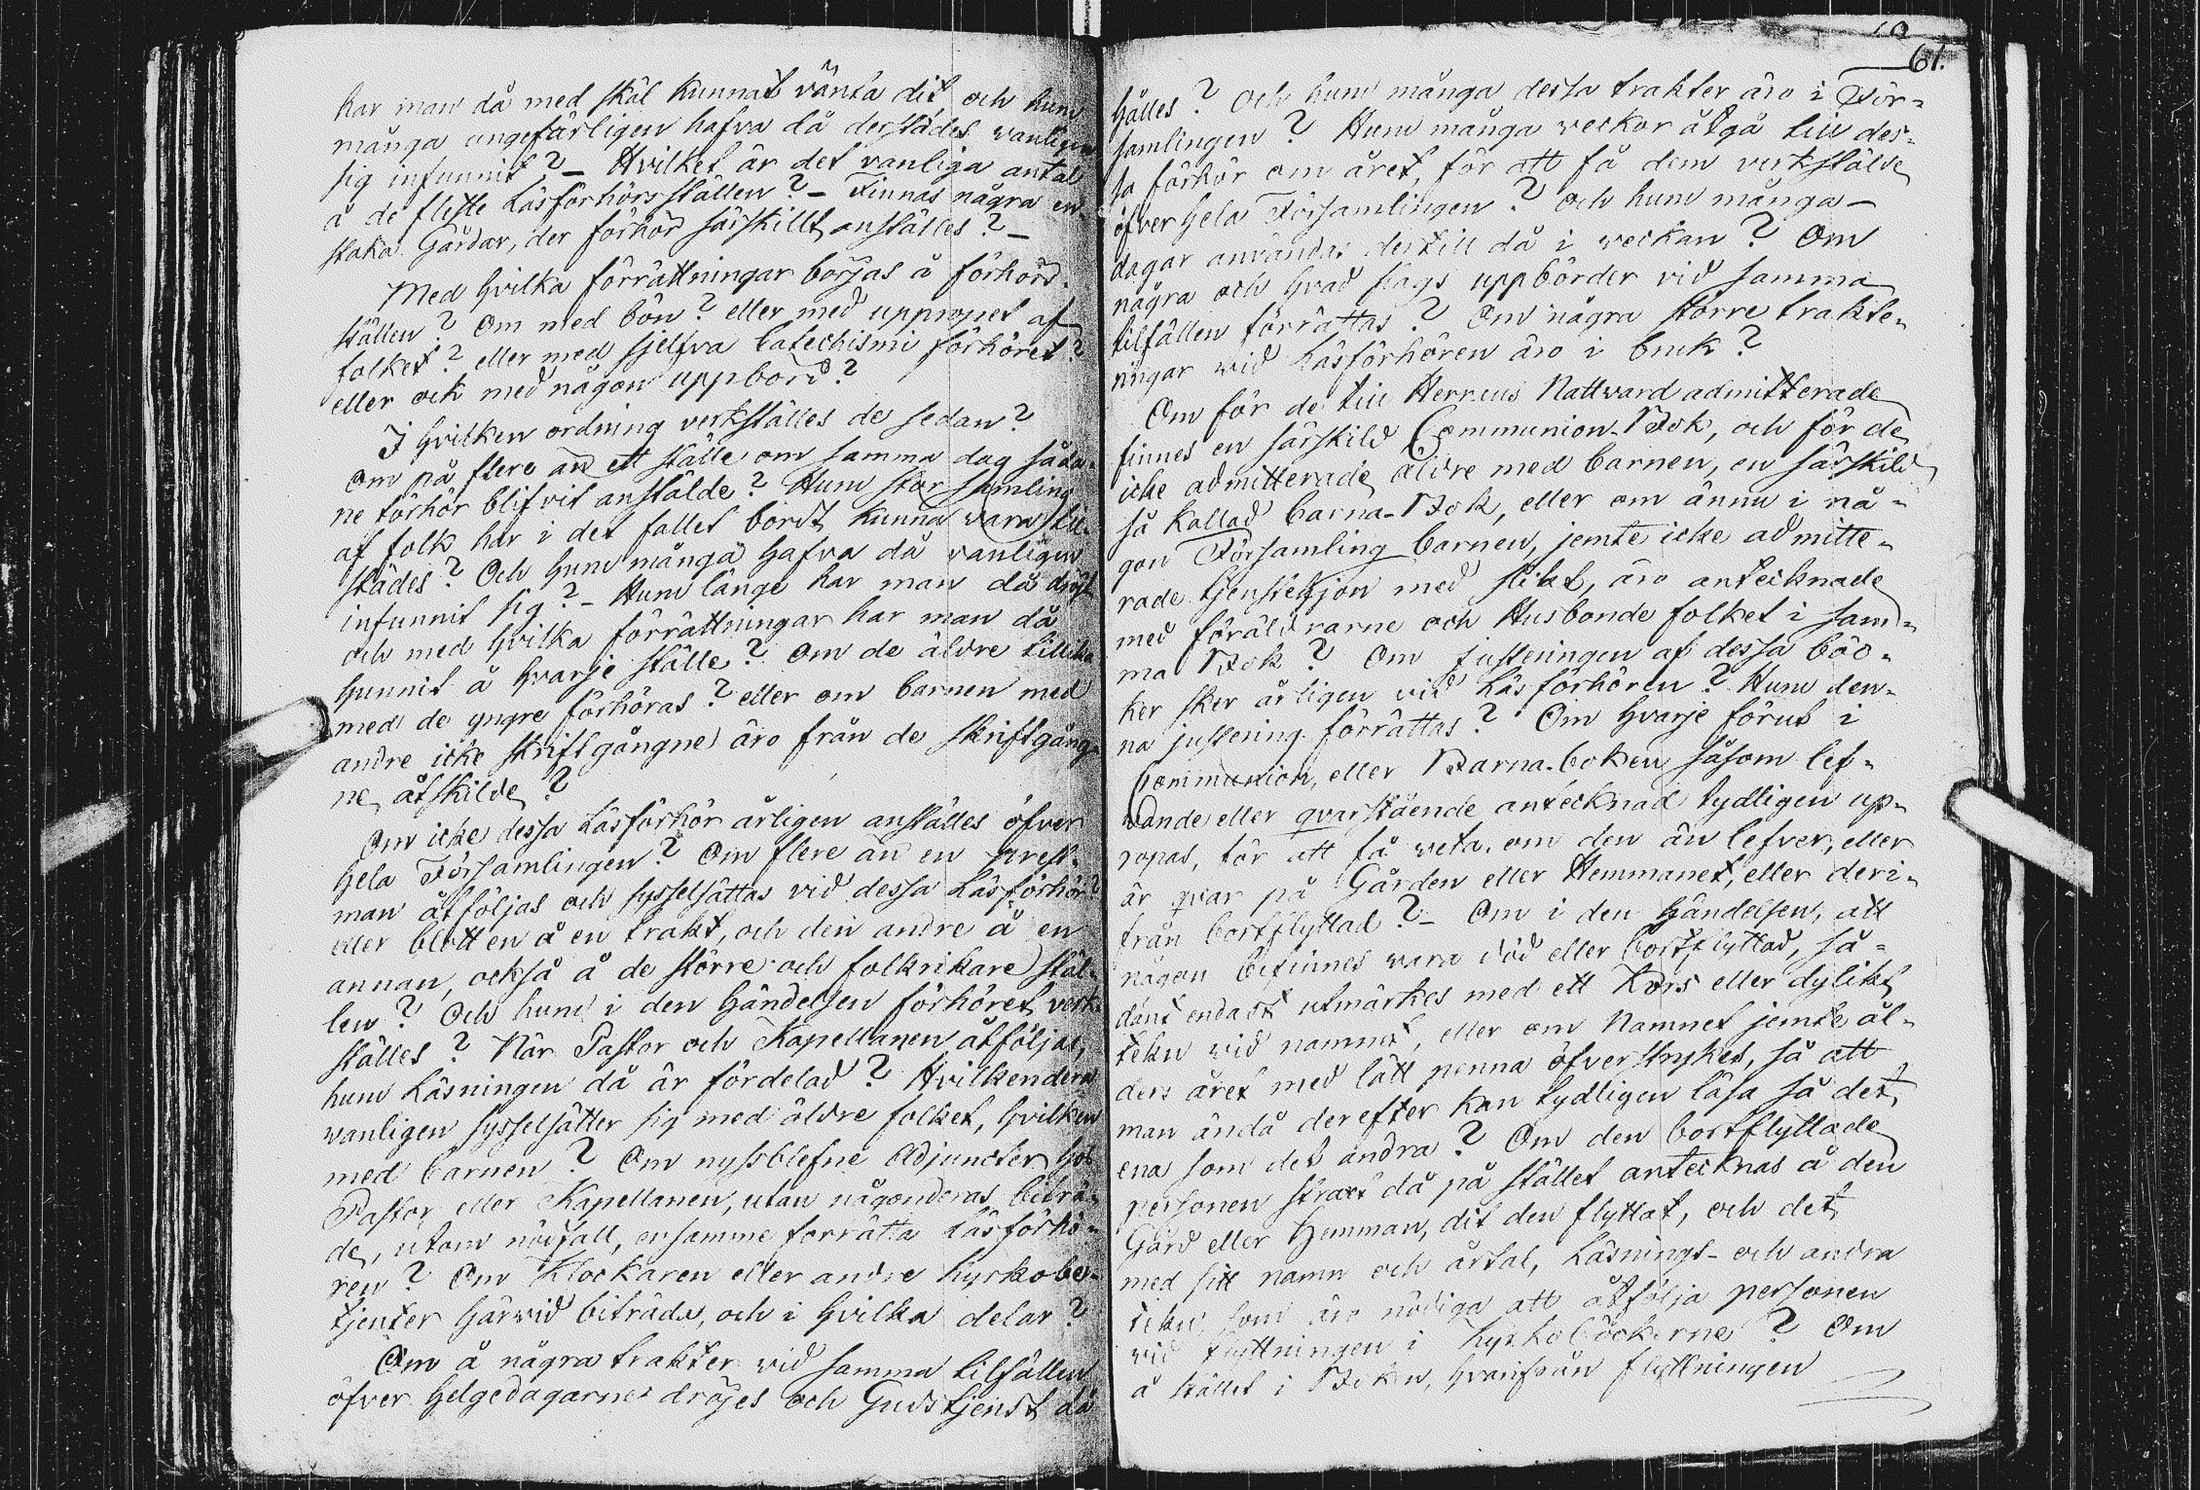 har man då med skäl kunnat vänta dit, och huru
många ungefärligen hafva då derstädes vanligen
sig infunnit? – Hvilket är det vanliga antal
å de fleste Läsförhörsställen? – Finnas några en-
staka Gårdar, der förhör särskillt anställes? –
Med hvilka förrättningar börjas å förhörs-
ställen? Om med bön? eller med uppropet af
folket? eller med sjelfva Catechismi förhöret?
eller ock med någon uppbörd?
I hvilken ordning verkställes de sedan?
Om på flere än ett ställe om samma dag såda-
ne förhör blifvit anstälde? Huru stor samling
af folk har i det fallet bordt kunna vara till-
städes? Och huru många hafva då vanligen
infunnit sig? – Huru länge har man då dröjt
och med hvilka förrättningar har man då
hunnit å hvarje ställe? Om de äldre tillika
med de yngre förhöras? eller om barnen med
andre icke skriftgångne äro från de skriftgång-
ne åtskilde?
Om icke dessa Läsförhör årligen anställes öfver
hela Församlingen? Om flere än en prest-
man åtföljas och sysselsättas vid dessa Läsförhör?
eller blott en å en trakt, och den andre å en
annan, också å de större och folkrikare stäl-
len? Och huru i den händelsen förhöret verk-
ställes? När Pastor och Kapellanen åtföljas,
huru Läsningen då är fördelad? Hvilkendera
vanligen sysselsätter sig med äldre folket, hvilken
med barnen? Om nyssblefne Adjuncter hos
Pastor eller Kapellanen, utan någonderas biträ-
de, utom nödfall, ensamme förrätta Läsförhö-
ren? Om Klockaren eller andre kyrkobe-
tjenter härvid biträda, och i hvilka delar?
Om å några trakter vid samma tilfällen
öfver helgedagarne dröjes och Gudstjenst då
61.
hålles? Och huru många dessa trakter äro i För-
samlingen? Huru många veckor åtgå till des-
sa förhör om året, för att få dem verkstälde
öfver hela Församlingen? och huru många –
dagar användas dertill då i veckan? Om
några och hvad slags uppbörder vid samma
tilfällen förrättas? Om några större trakte-
ringar vid Läsförhören äro i bruk?
Om för de till Herrens Nattvard admitterade
finnes en särskild Communion-Bok, och för de
icke admitterade äldre med barnen, en särskild
så kallad Barna-Bok, eller om ännu i nå-
gon Församling barnen, jemte icke admitte-
rade tjenstehjon med slikt, äro antecknade
med föräldrarne och Husbonde folket i sam-
ma Bok? Om justeringen af dessa böc-
ker sker årligen vid Läsförhören? Huru den-
na justering förrättas? Om hvarje förut i
Communion, eller Barna-boken såsom lef-
vande eller qvarstående antecknad tydligen up-
ropas, för att få veta, om den än lefver, eller
är qvar på Gården eller Hemmanet, eller deri-
från bortflyttad? – Om i den händelsen, att
någon befinnes vara död eller bortflyttad, så-
dant endast utmärkes med ett Kors eller dylikt
tekn vid namnet, eller om Namnet jemte ål-
ders året med lätt penna öfverstrykes, så att
man ändå derefter kan tydligen läsa så det
ena som det andra? Om den bortflyttade
personen strax då på stället antecknas å den
Gård eller Hemman, dit den flyttat, och det
med sitt namn och årtal, Läsnings- och andra
tekn, som äro nödiga att åtfölja personen
vid flyttningen i kyrkoböckerne? Om
å stället i Boken, hvarifrån flyttningen